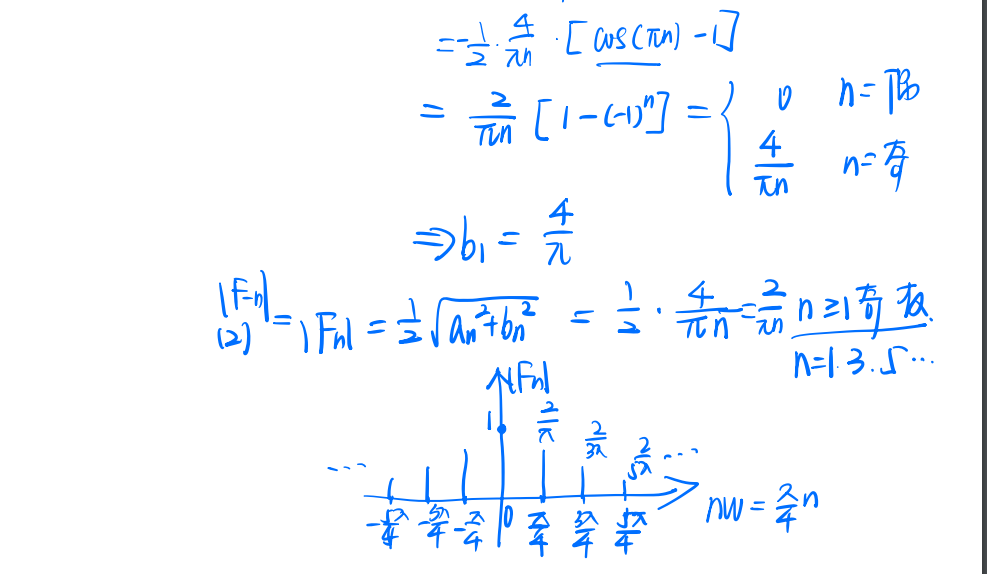 = -1/2 · 4/πn · [cos(πn) - 1]
= 2/πn [1 - (-1)^n] = { 0 n = 偶
4/πn n = 奇
⇒ b₁ = 4/π
(2) |F-n| = |Fn| = 1/2 √(an² + bn²) = 1/2 · 4/πn = 2/πn n ≥ 1 奇数
n = 1. 3. 5 ...
|Fn|
1 2/π 2/3π 2/5π ...
...
-5π/4 -3π/4 -π/4 0 π/4 3π/4 5π/4 nw = π/4 n